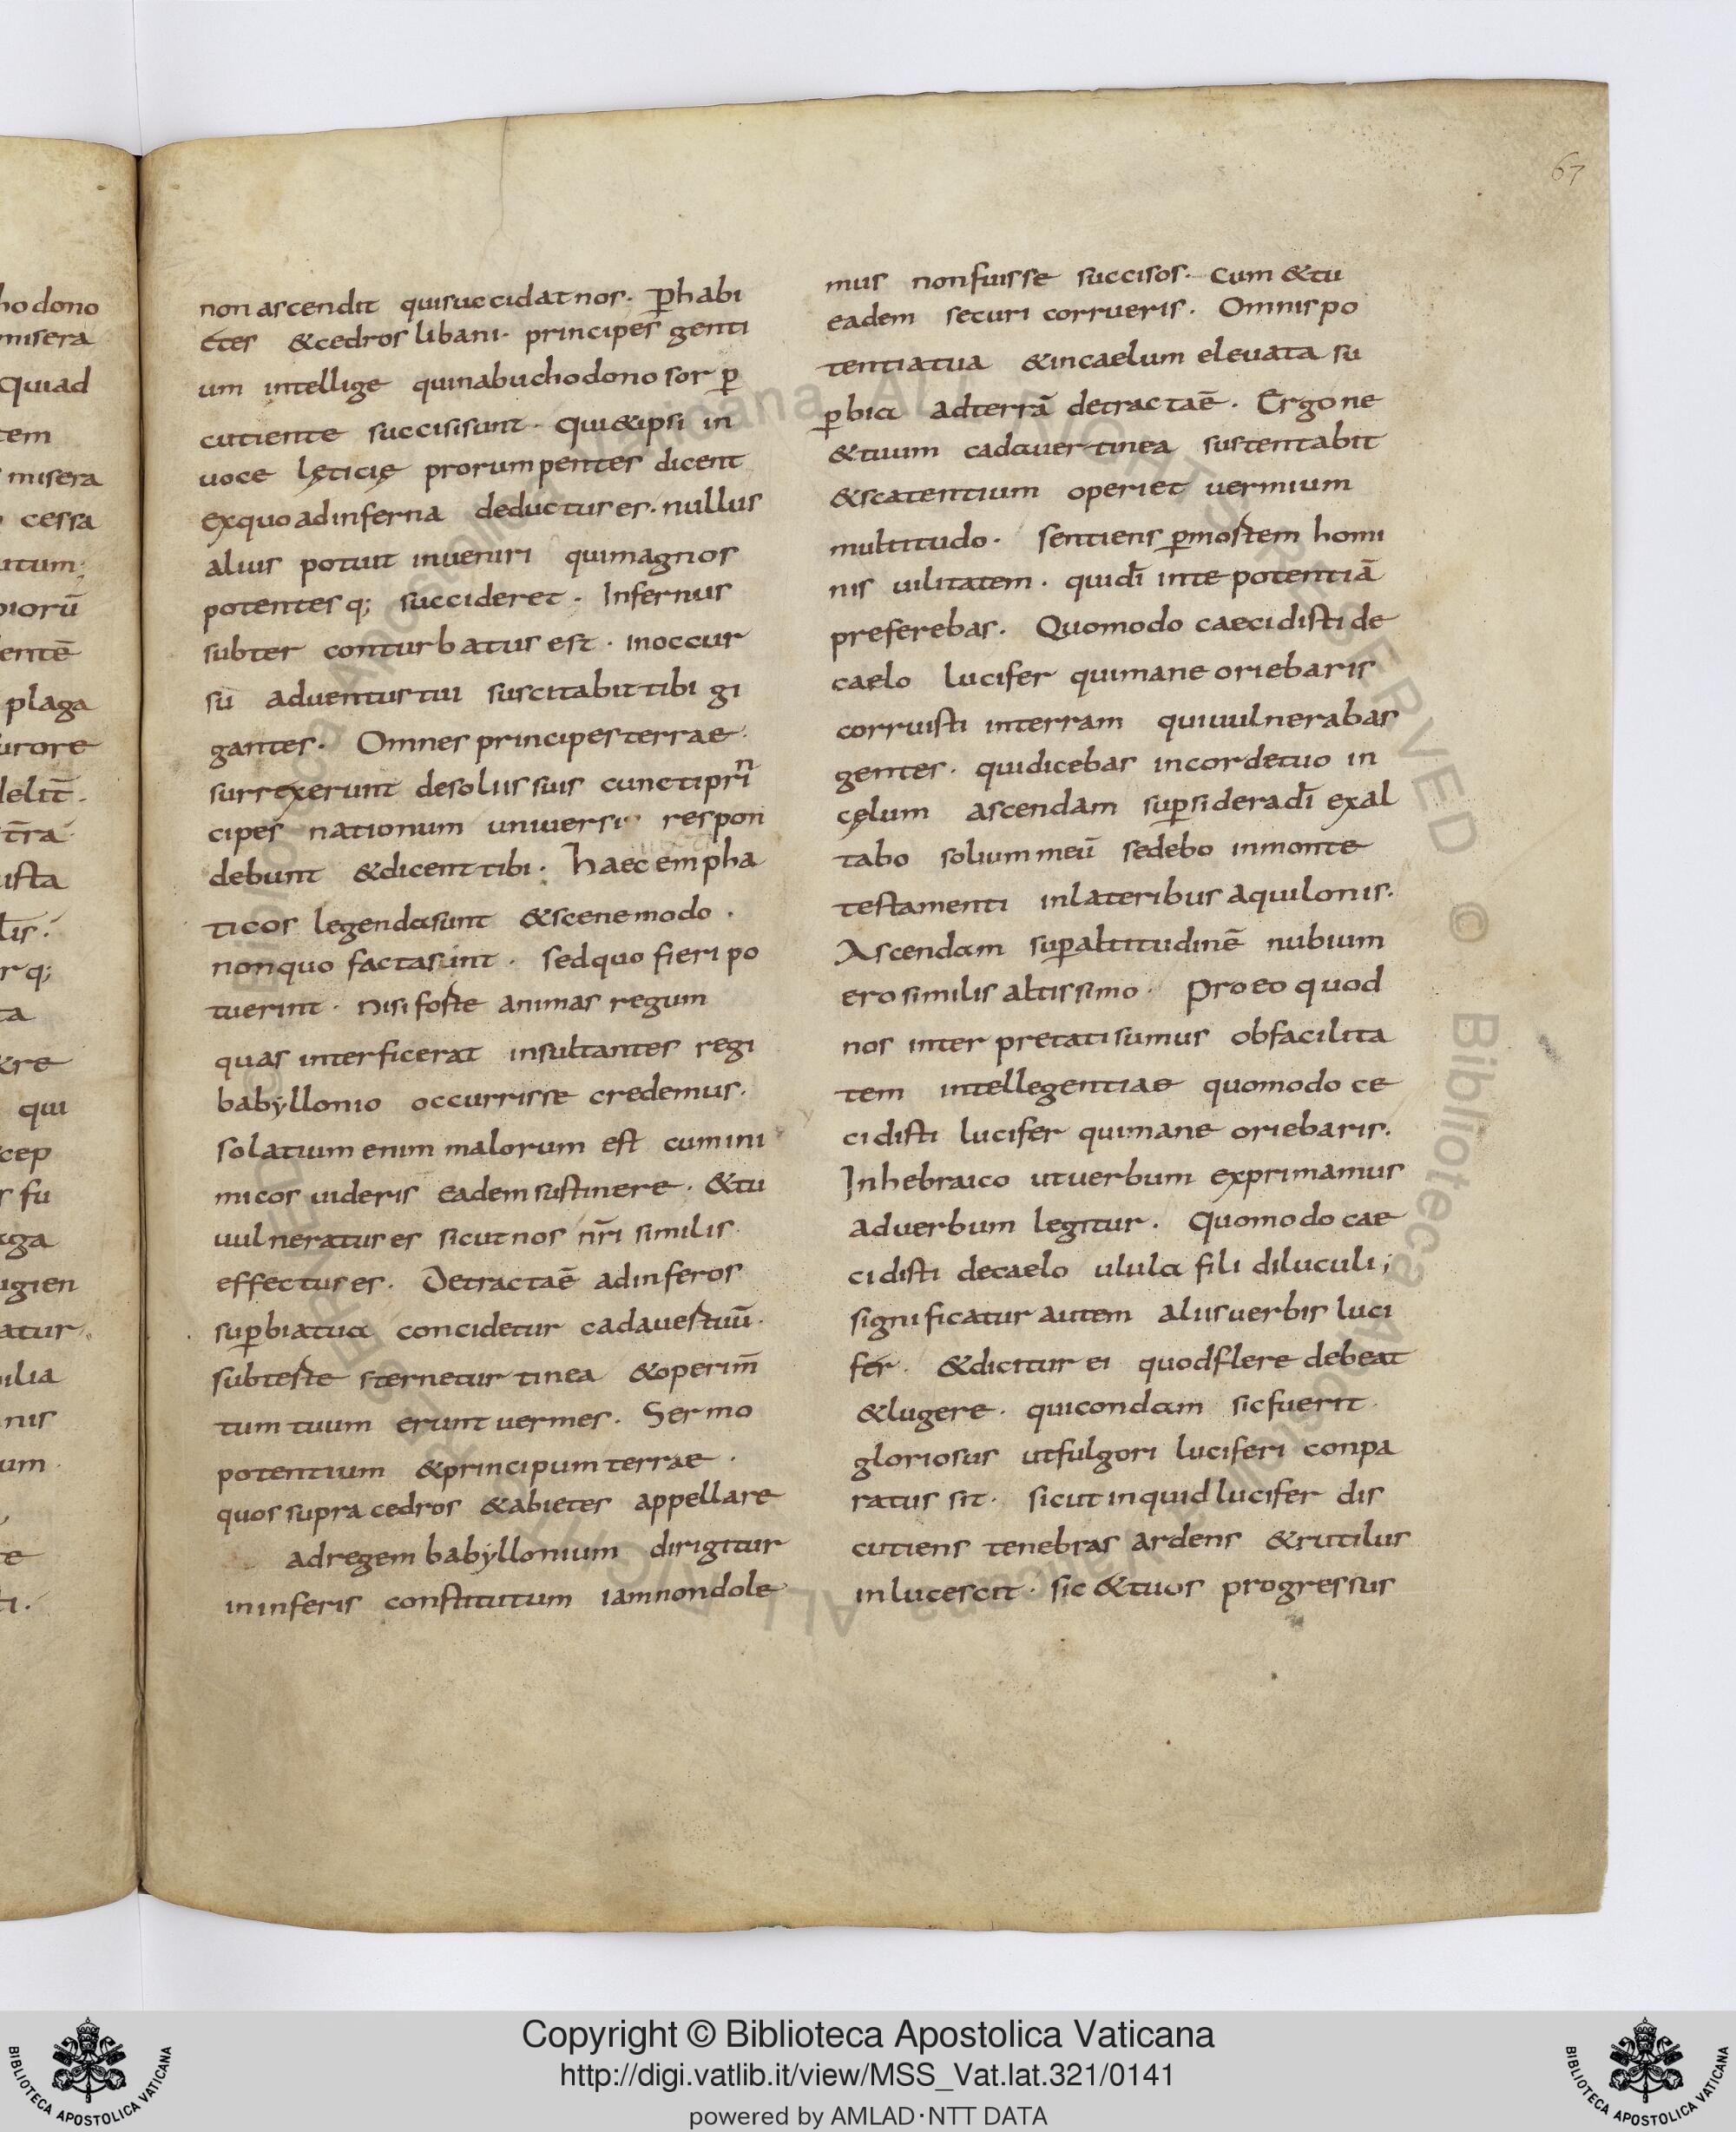 67
hodono
misera
Quiad
tem
misera
cessa
utum;
piorū
entē
plaga
urore
delit̄.
tr̄a
usta
lis.
rq;
ta
&re
qui
cep
s fu
aga
ugien
atur.
ilia
nis
um.
te
ti.
non ascendit quisuccidat nos. p̄habi
etes &cedros libani. principes genti
um intellige quinabuchodonosor p̄
cutiente succisisunt. Qui&ipsi in
uoce lęticię prorumpentes dicent
exquo adinferna deductus es. nullus
alius potuit inueniri quimagnos
potentesq; succideret. Infernus
subter conturbatus est. inoccur
sū aduentus tui suscitabit tibi gi
gantes. Omnes principes terrae.
surrexerunt desoliis suis cuncti prin
cipes nationum uniuersi respon
debunt &dicent tibi. Haec empha
ticos legenda sunt &scene modo.
nonquo facta sint. sedquo fieri po
tuerint. nisi forte animas regum
quas interficerat insultantes regi
babyllonio occurrisse credemus.
solatium enim malorum est cum ini
micos uideris eadem sustinere. &tu
uulneratus es sicut nos nr̄i similis
effectus es. Detractaē adinferos
sup̄biatua concidetur cadauertuū.
subterte sternetur tinea &operim̄
tum tuum erunt uermes. Sermo
potentium &principum terrae.
quos supra cedros &abietes appellare
adregem babyllonium dirigitur
ininferis constitutum iamnondole
mus nonfuisse succisos. Cum &tu
eadem securi corrueris. Omnis po
tentiatua &incaelum eleuata su
p̄bia adterrā detractaē. Ergo ne
&tuum cadauer tinea sustentabit
&scatentium operiet uermium
multitudo. sentiens p̄mortem homi
nis uilitatem. quidī inte potentiā
preferebas. Quomodo caecidisti de
caelo lucifer quimane oriebaris
corruisti interram quiuulnerabas
gentes. quidicebas incordetuo in
cęlum ascendam sup̄sideradī exal
tabo solium meū sedebo inmonte
testamenti inlateribus aquilonis.
Ascendam sup̄altitudinē nubium
ero similis altissimo. Pro eo quod
nos interpretati sumus obfacilita
tem intellegentiae quomodo ce
cidisti lucifer quimane oriebaris.
Inhebraico utuerbum exprimamus
aduerbum legitur. Quomodo cae
cidisti decaelo ulula fili diluculi;
significatur autem aliisuerbis luci
fer. &dicitur ei quodflere debeat
&lugere. quicondam sicfuerit
gloriosus utfulgori luciferi conpa
ratus sit. sicut inquid lucifer dis
cutiens tenebras ardens &rutilus
inlucescit. sic &tuus progressus
© Biblioteca Apostolica Vaticana ALL RIGHTS RESERVED
Copyright © Biblioteca Apostolica Vaticana
http://digi.vatlib.it/view/MSS_Vat.lat.321/0141
powered by AMLAD·NTT DATA
BIBLIOTECA APOSTOLICA VATICANA
BIBLIOTECA APOSTOLICA VATICANA